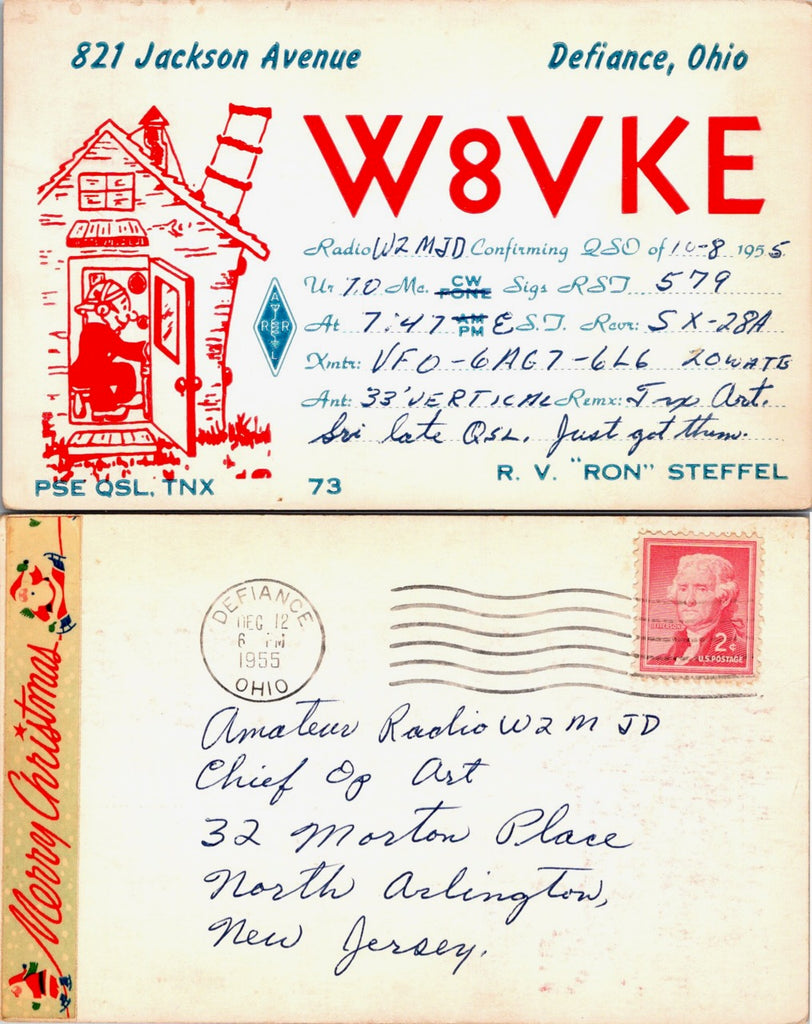 821 Jackson Avenue Defiance, Ohio
W8VKE
Radio W2MJD Confirming QSO of 10-8 1955
Ur 7.0 Mc. CW FONE Sigs RST 579
At 7:47 AM PM E.S.T. Rcvr: SX-28A
Xmtr: VFO-6AG7-6L6 20 WATTS
Ant: 33' VERTICAL Remx: Tnx Art.
Sri late QSL. Just got them.
A
R R
L
PSE QSL, TNX 73 R. V. "RON" STEFFEL
Merry Christmas
DEFIANCE
DEC 12
6 PM
1955
OHIO
JEFFERSON
2¢
U.S. POSTAGE
Amateur Radio W2MJD
Chief Op Art
32 Morton Place
North Arlington,
New Jersey.